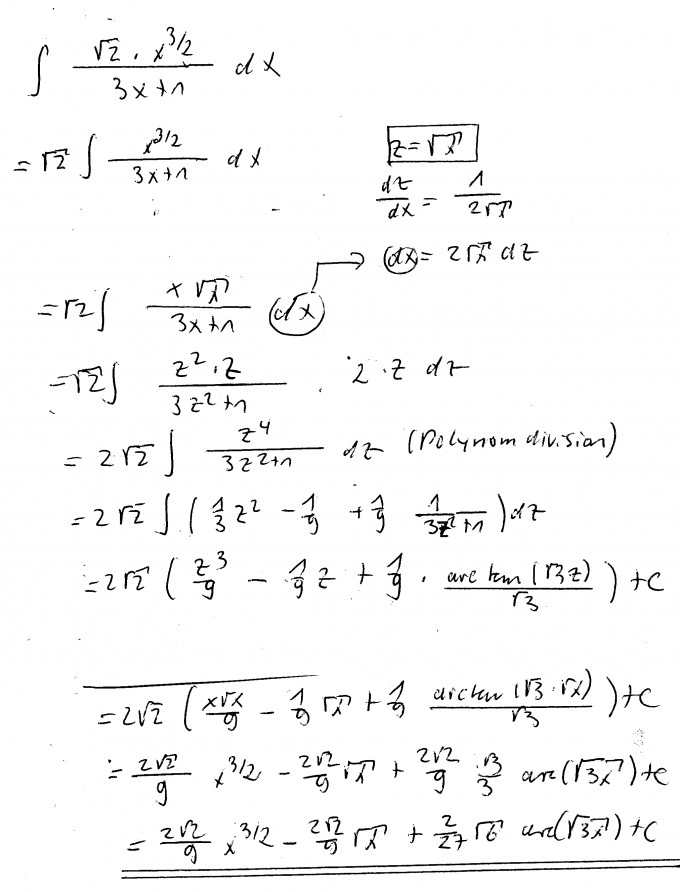 ∫ (√2 · x^(3/2)) / (3x+1) dx
= √2 ∫ x^(3/2) / (3x+1) dx
z = √x
dz/dx = 1/(2√x)
dx = 2√x dz
= √2 ∫ (x √x) / (3x+1) dx
= √2 ∫ (z² · z) / (3z²+1) · 2 · z dz
= 2√2 ∫ z⁴ / (3z²+1) dz (Polynomdivision)
= 2√2 ∫ ( 1/3 z² - 1/9 + 1/9 1/(3z²+1) ) dz
= 2√2 ( z³/9 - 1/9 z + 1/9 · arctan(√3 z)/√3 ) + C
= 2√2 ( x√x/9 - 1/9 √x + 1/9 arctan(√3 · √x)/√3 ) + C
= 2√2/9 x^(3/2) - 2√2/9 √x + 2√2/9 · √3/3 arc(√3x) + C
= 2√2/9 x^(3/2) - 2√2/9 √x + 2/27 √6 arc(√3x) + C